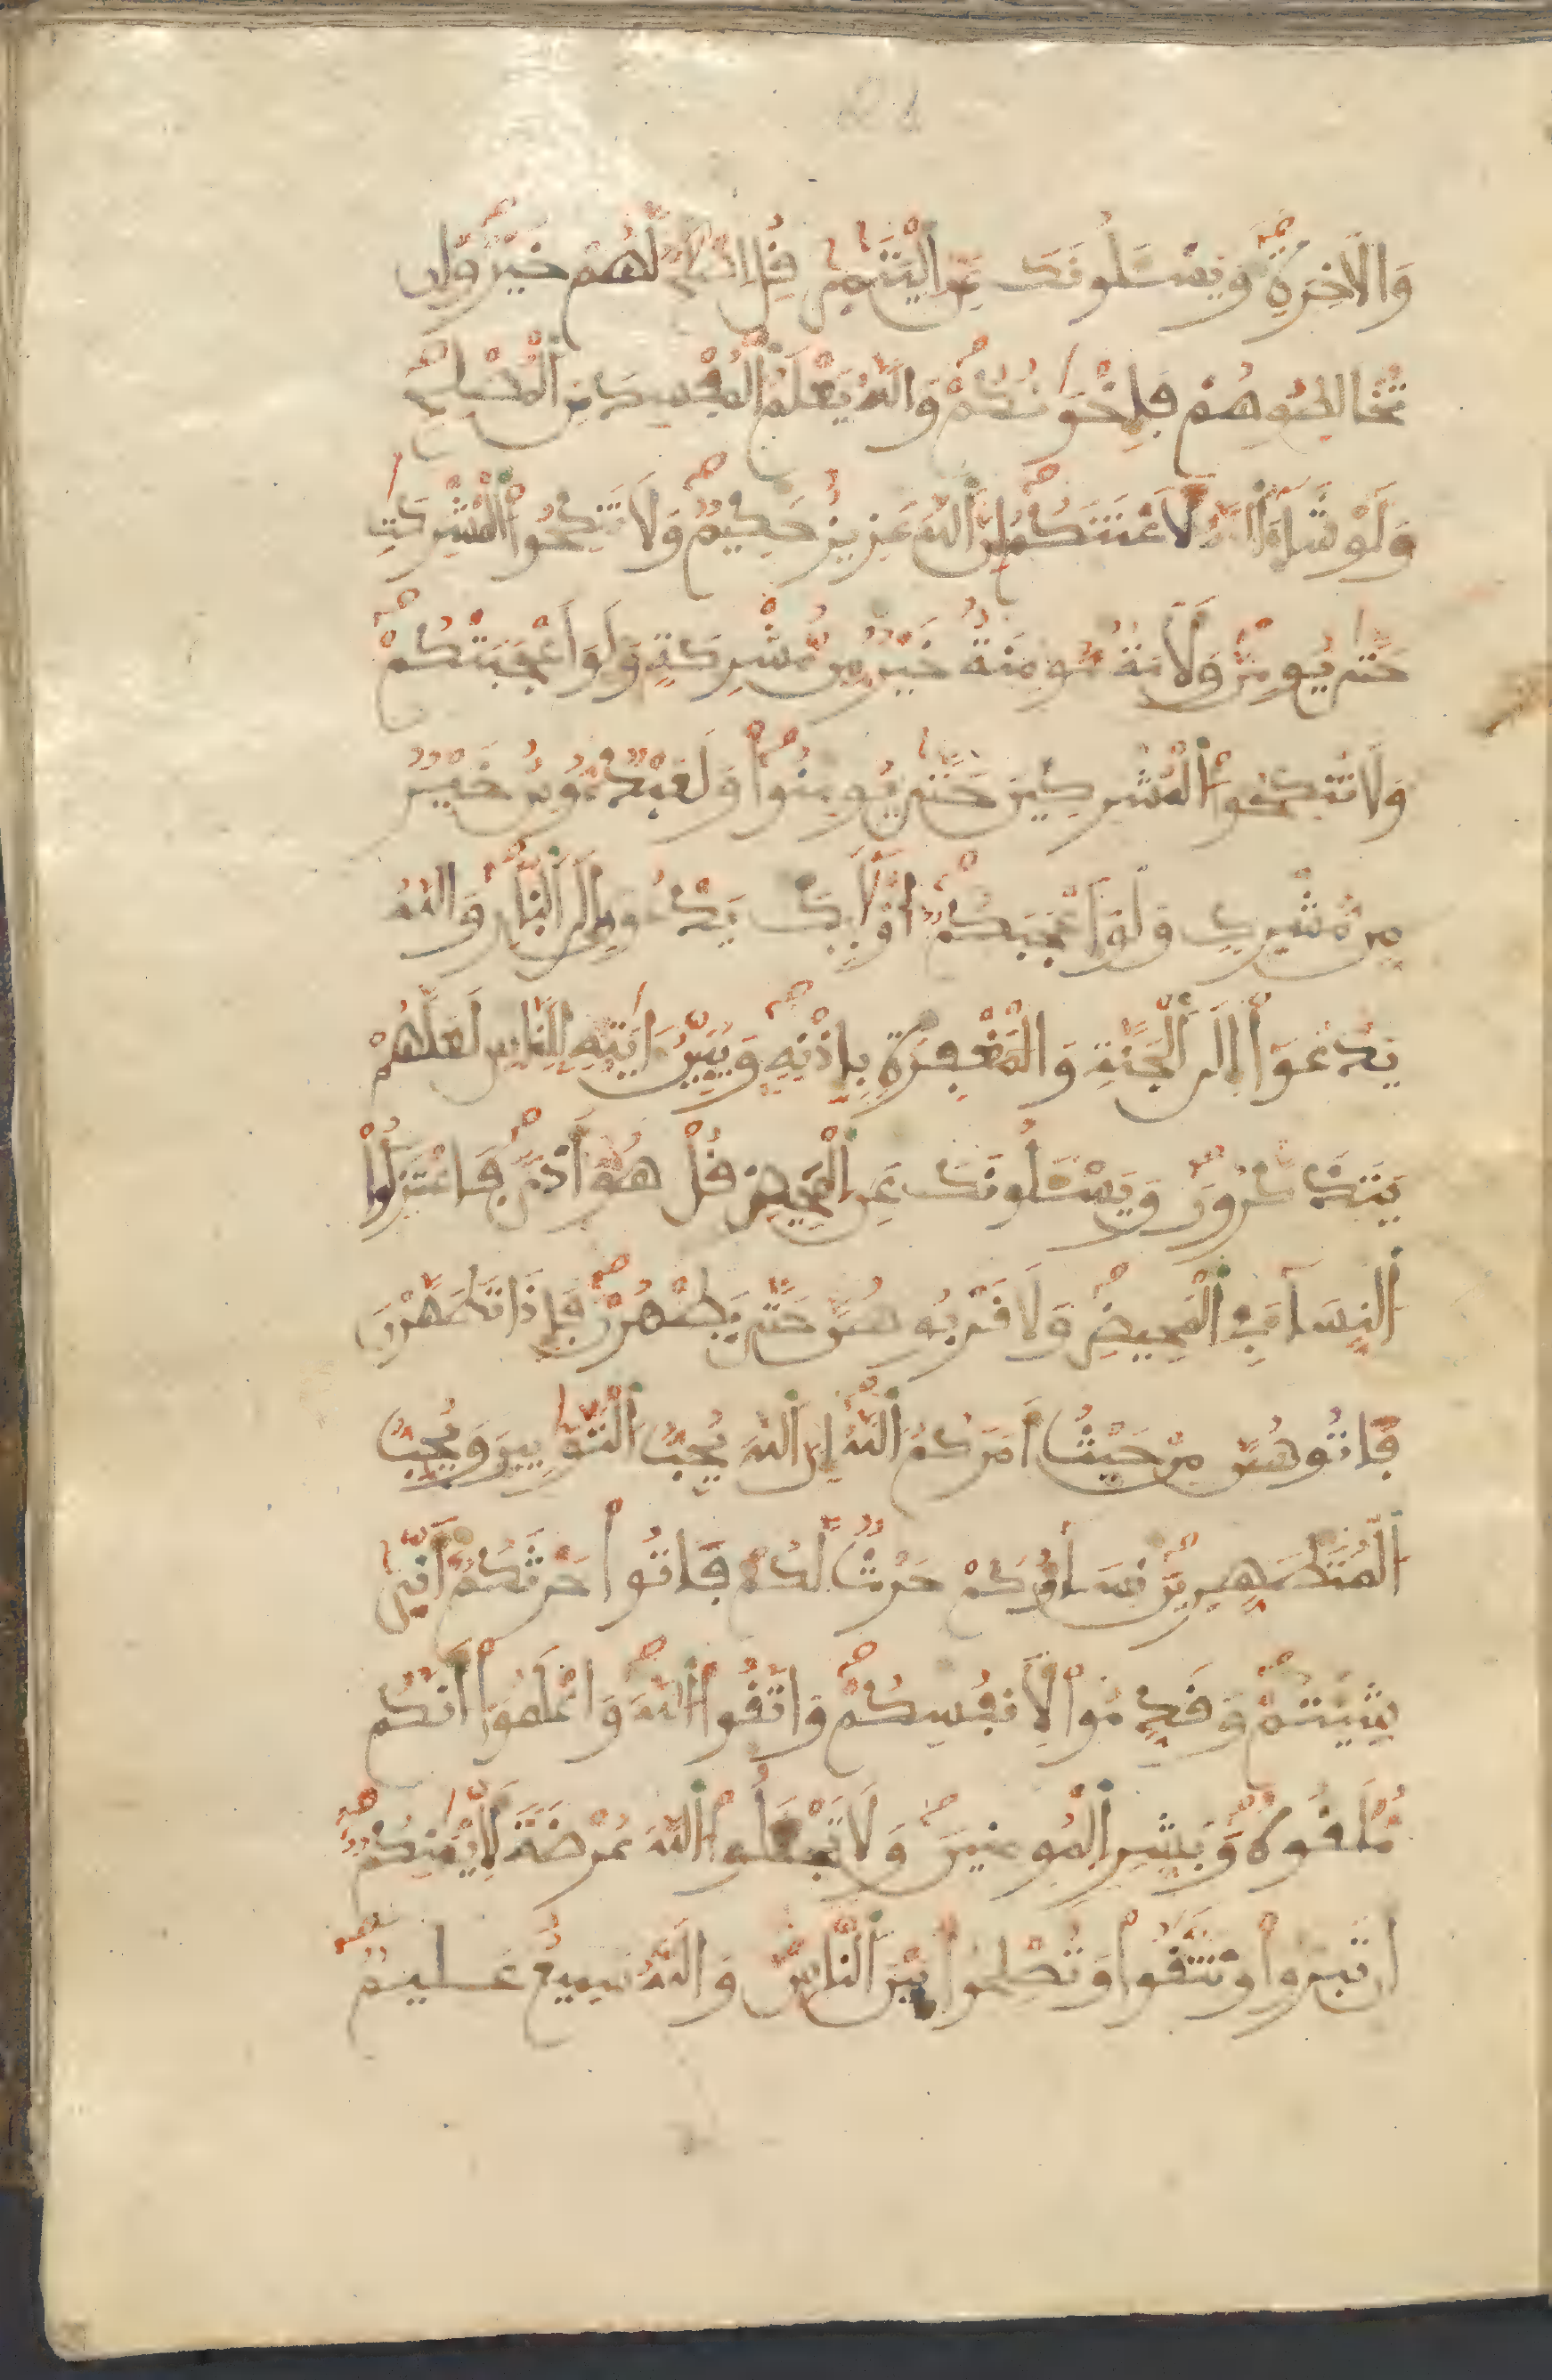 وَالَاخِرَةِ وَيَسْـَٔلُونَكَ عَنِ اِ۬لْيَتَٰمىٰ قُلِ اِصْلَٰحٌ لَّهُمْ خَيْرٌ وَإِن
تُخَالِطُوهُمْ فَإِخْوَٰنُكُمْ وَاللَّهُ يَعْلَمُ اُ۬لْمُفْسِدَ مِنَ اَ۬لْمُصْلِحِ
وَلَوْ شَآءَ اَ۬للَّهُ لَأَعْنَتَكُمُ إِنَّ اَ۬للَّهَ عَزِيزٌ حَكِيمٌ وَلَا تَنكِحُواْ اُ۬لْمُشْرِكَٰتِ
حَتَّىٰ يُومِنَّ وَلَأَمَةٌ مُّومِنَةٌ خَيْرٌ مِّن مُّشْرِكَةٍ وَلَوَ اَعْجَبَتْكُمْ
وَلَا تُنكِحُواْ اُ۬لْمُشْرِكِينَ حَتَّىٰ يُومِنُواْ وَلَعَبْدٌ مُّومِنٌ خَيْرٌ
مِّن مُّشْرِكٍ وَلَوَ اَعْجَبَكُمُ أُوْلَٰٓئِكَ يَدْعُونَ إِلَى اَ۬لنَّارِ وَاللَّهُ
يَدْعُوٓاْ إِلَى اَ۬لْجَنَّةِ وَالْمَغْفِرَةِ بِإِذْنِهِ وَيُبَيِّنُ ءَايَٰتِهِ لِلنَّاسِ لَعَلَّهُمْ
يَتَذَكَّرُونَ وَيَسْـَٔلُونَكَ عَنِ اِ۬لْمَحِيضِ قُلْ هُوَ أَذىً فَاعْتَزِلُواْ
اُ۬لنِّسَآءَ فِي اِ۬لْمَحِيضِ وَلَا تَقْرَبُوهُنَّ حَتَّىٰ يَطْهُرْنَ فَإِذَا تَطَهَّرْنَ
فَاتُوهُنَّ مِنْ حَيْثُ أَمَرَكُمُ اُ۬للَّهُ إِنَّ اَ۬للَّهَ يُحِبُّ اُ۬لتَّوَّٰبِينَ وَيُحِبُّ
اُ۬لْمُتَطَهِّرِينَ نِسَآؤُكُمْ حَرْثٌ لَّكُمْ فَاتُواْ حَرْثَكُمُ أَنّىٰ
شِيتُمْ وَقَدِّمُواْ لِأَنفُسِكُمْ وَاتَّقُواْ اُ۬للَّهَ وَاعْلَمُوٓاْ أَنَّكُم
مُّلَٰقُوهُ وَبَشِّرِ اِ۬لْمُومِنِينَ وَلَا تَجْعَلُواْ اُ۬للَّهَ عُرْضَةً لِّأَيْمَٰنِكُمُ
أَن تَبَرُّواْ وَتَتَّقُواْ وَتُصْلِحُواْ بَيْنَ اَ۬لنَّاسِ وَاللَّهُ سَمِيعٌ عَلِيمٌ